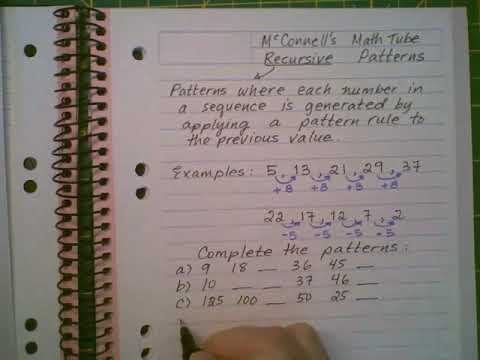 McConnell's Math Tube
Recursive Patterns
Patterns where each number in
a sequence is generated by
applying a pattern rule to
the previous value.
Examples: 5, 13, 21, 29, 37
+8 +8 +8 +8
22, 17, 12, 7, 2
-5 -5 -5 -5
Complete the patterns:
a) 9 18 __ 36 45 __
b) 10 __ __ 37 46 __
c) 125 100 __ 50 25 __